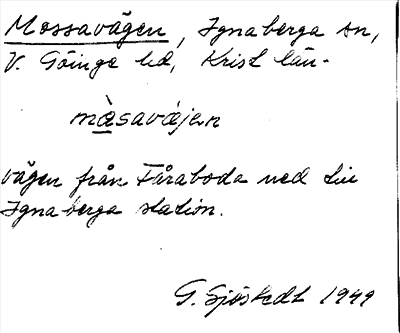 Mossavägen, Ignaberga sn,
V. Göinge hd, Krist län.
mɑ̀savæjen
vägen från Fåraboda ned till
Ignaberga station.
G. Sjöstedt 1949